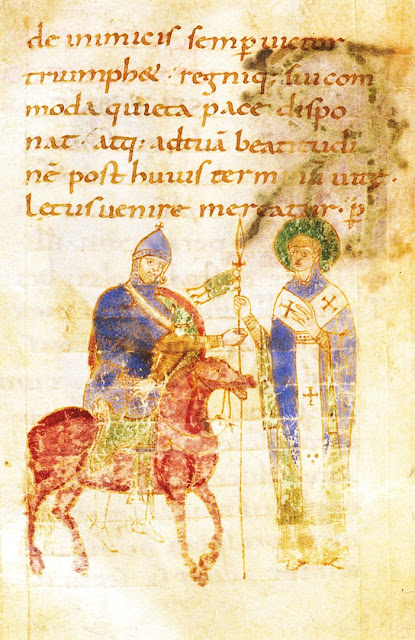 de inimicis semp uictor
triumph& · regniq; sui com
moda quieta pace dispo
nat · atq; ad tuā beatitudi
nē post huius terminū uitę
letus uenire mereatur · p